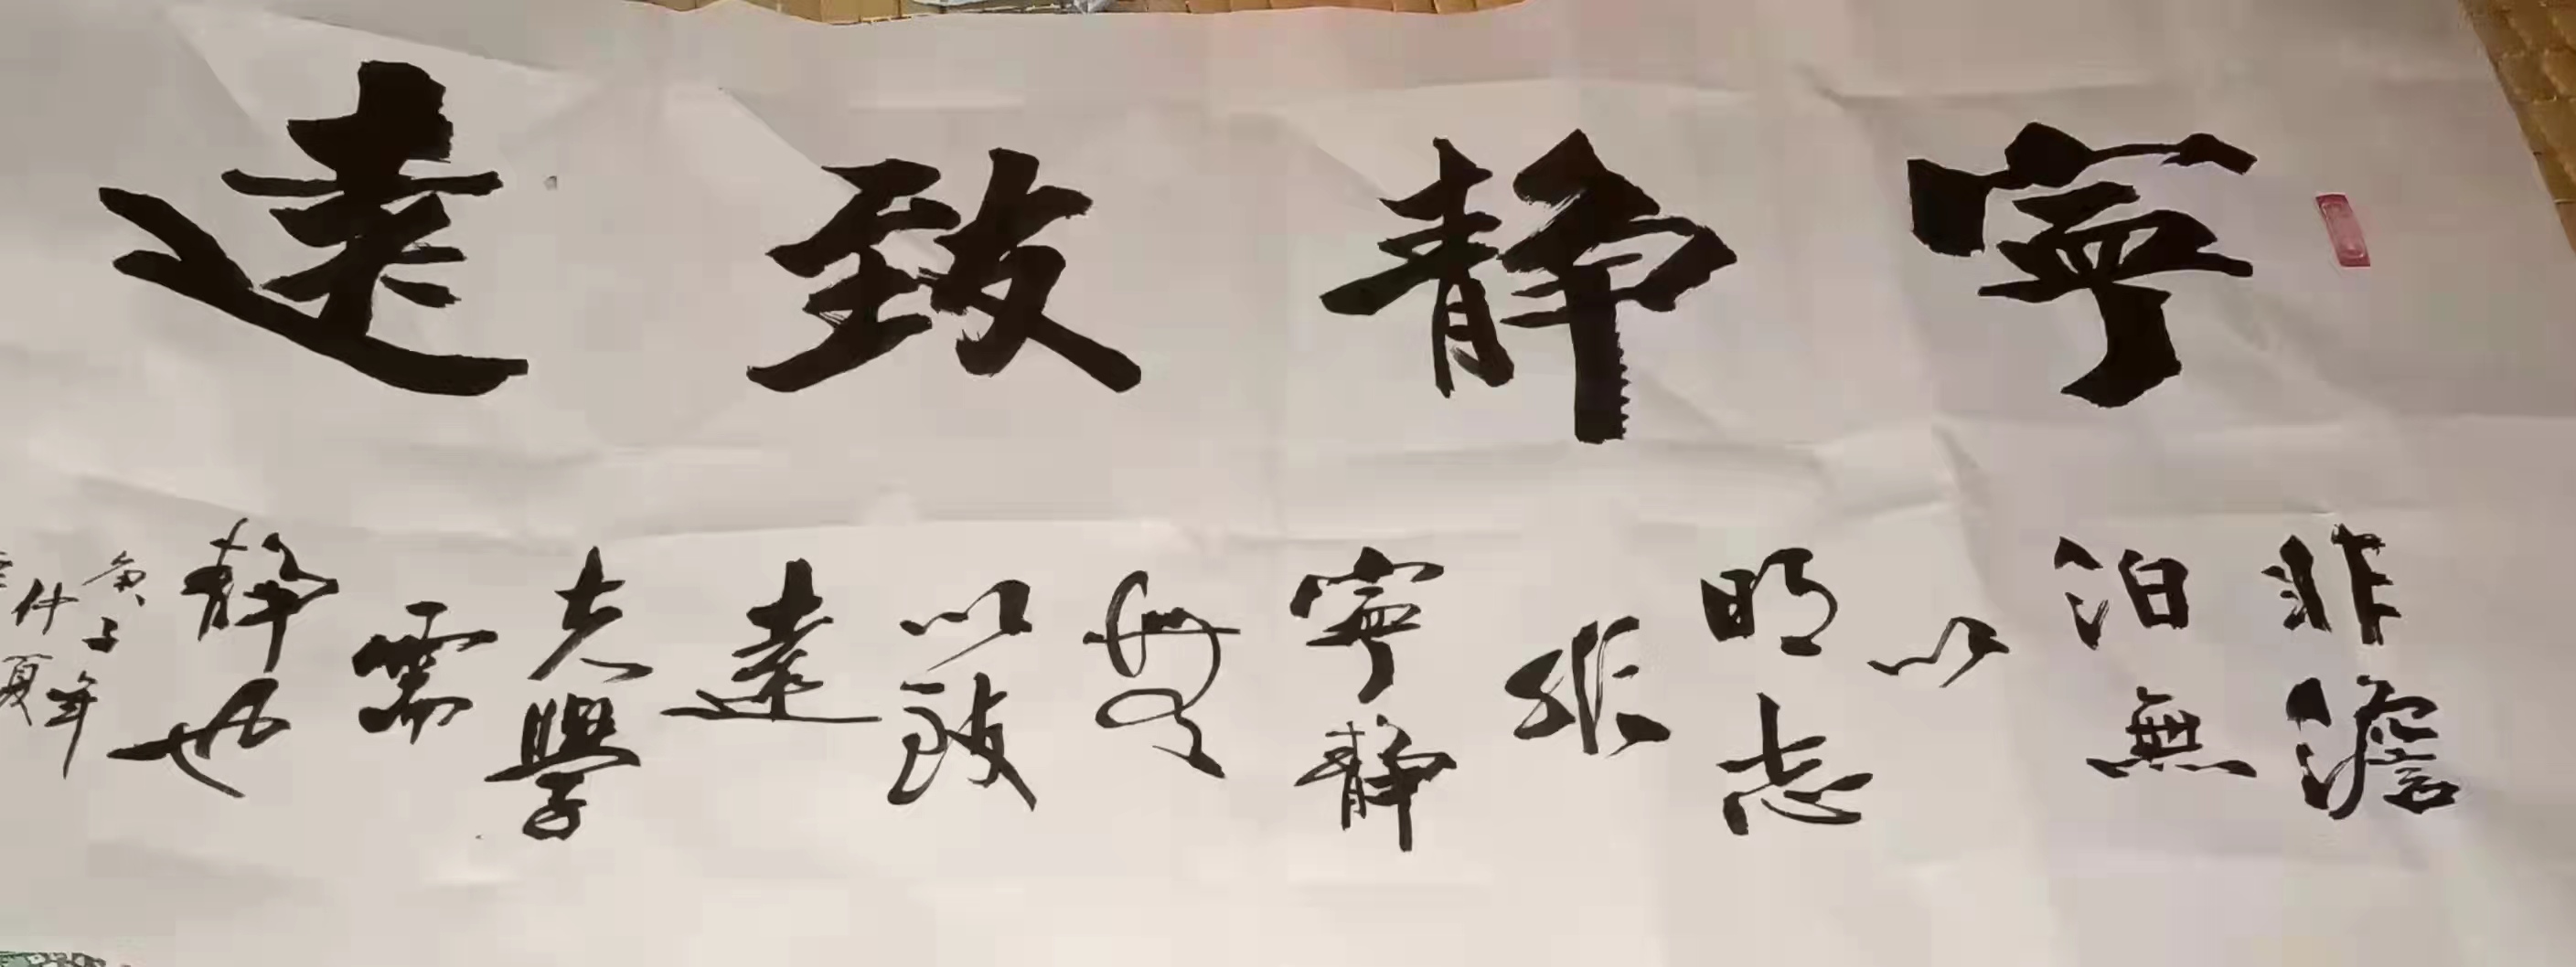 寧静致遠
非澹
泊無
以
明志
非
寧静
無
以致
遠
夫學
需
静也
庚子年
仲夏